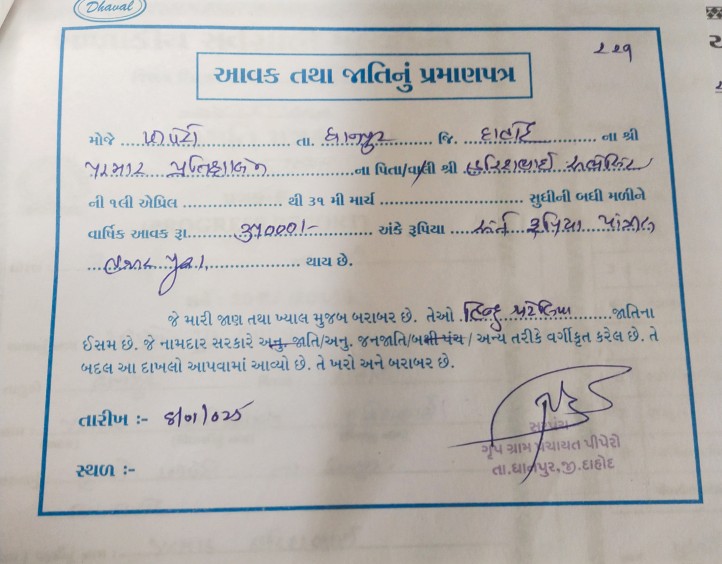 Dhaval
૨૨૧
આવક તથા જાતિનું પ્રમાણપત્ર
મોજે પીપેરો તા. ધાનપુર જિ. દાહોદ ના શ્રી
પરમાર ના પિતા/વાલી શ્રી
ની ૧લી એપ્રિલ થી ૩૧ મી માર્ચ સુધીની બધી મળીને
વાર્ષિક આવક રૂા. ૩૫૦૦૦/- અંકે રૂપિયા રૂપિયા પાંત્રીસ
હજાર પુરા થાય છે.
જે મારી જાણ તથા ખ્યાલ મુજબ બરાબર છે. તેઓ હિન્દુ પટેલિયા જાતિના
ઈસમ છે. જે નામદાર સરકારે અનુ. જાતિ/અનુ. જનજાતિ/બક્ષી પંચ / અન્ય તરીકે વર્ગીકૃત કરેલ છે. તે
બદલ આ દાખલો આપવામાં આવ્યો છે. તે ખરો અને બરાબર છે.
તારીખ :-
સરપંચ
ગૃપ ગ્રામ પંચાયત પીપેરો
સ્થળ :-
તા.ધાનપુર,જી.દાહોદ